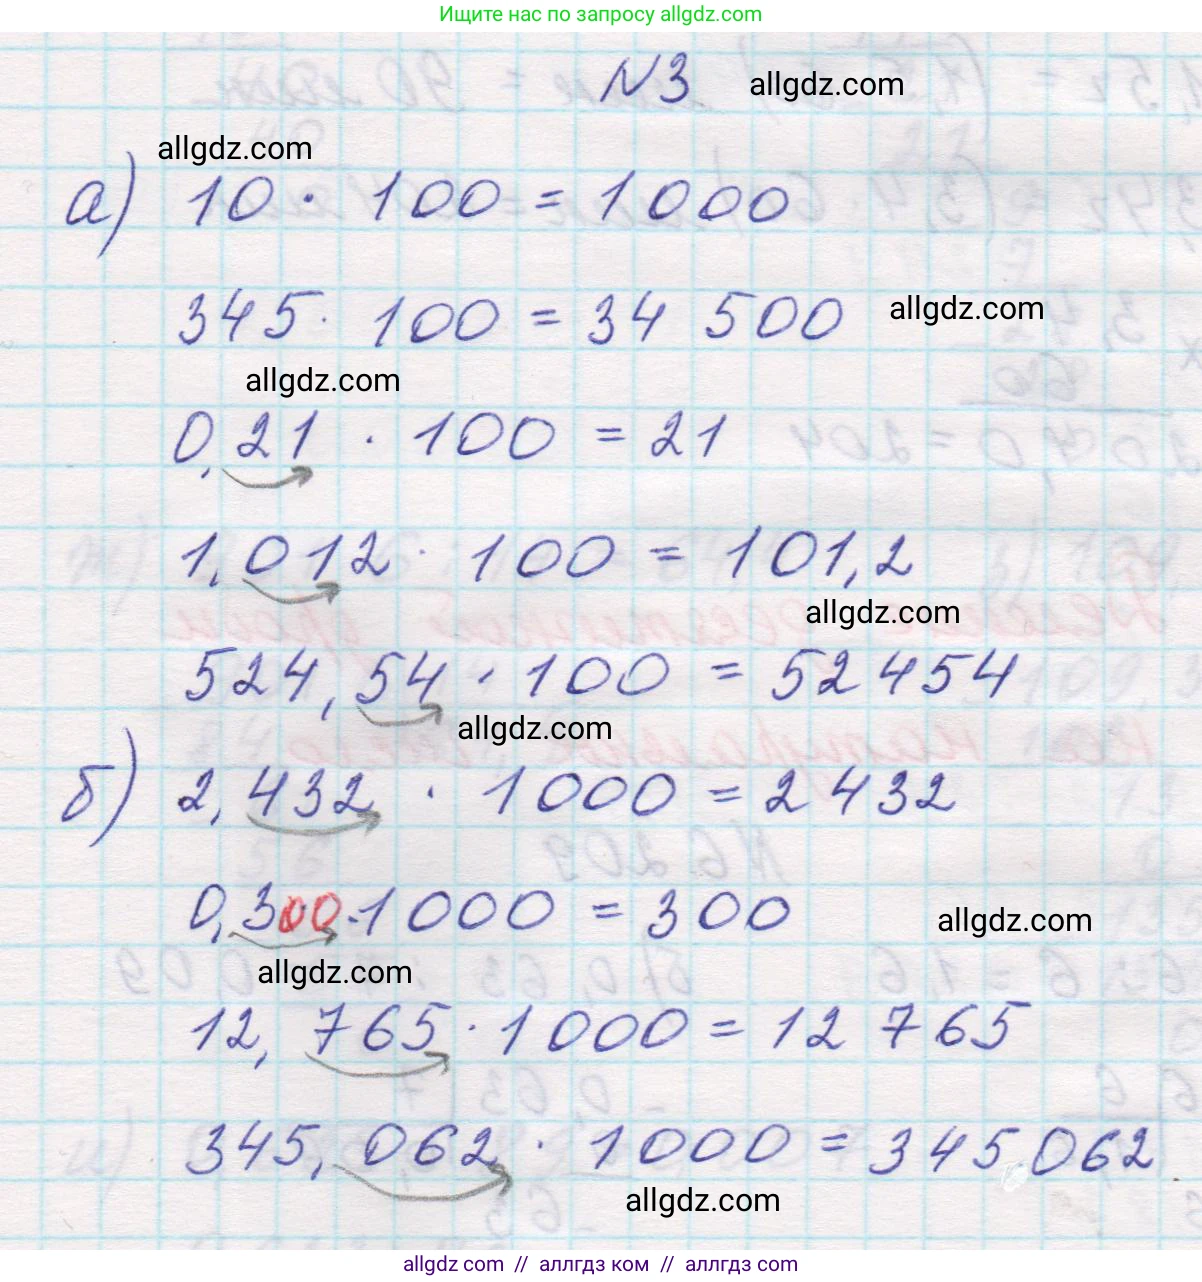 Ищите нас по запросу allgdz.com
N3 allgdz.com
allgdz.com
а) 10 · 100 = 1000
345 · 100 = 34 500 allgdz.com
allgdz.com
0,21 · 100 = 21
1,012 · 100 = 101,2
allgdz.com
524,54 · 100 = 52454
allgdz.com
б) 2,432 · 1000 = 2432
0,300 · 1000 = 300 allgdz.com
allgdz.com
12,765 · 1000 = 12 765
345,062 · 1000 = 345 062
allgdz.com
allgdz.com // аллгдз ком // аллгдз.com